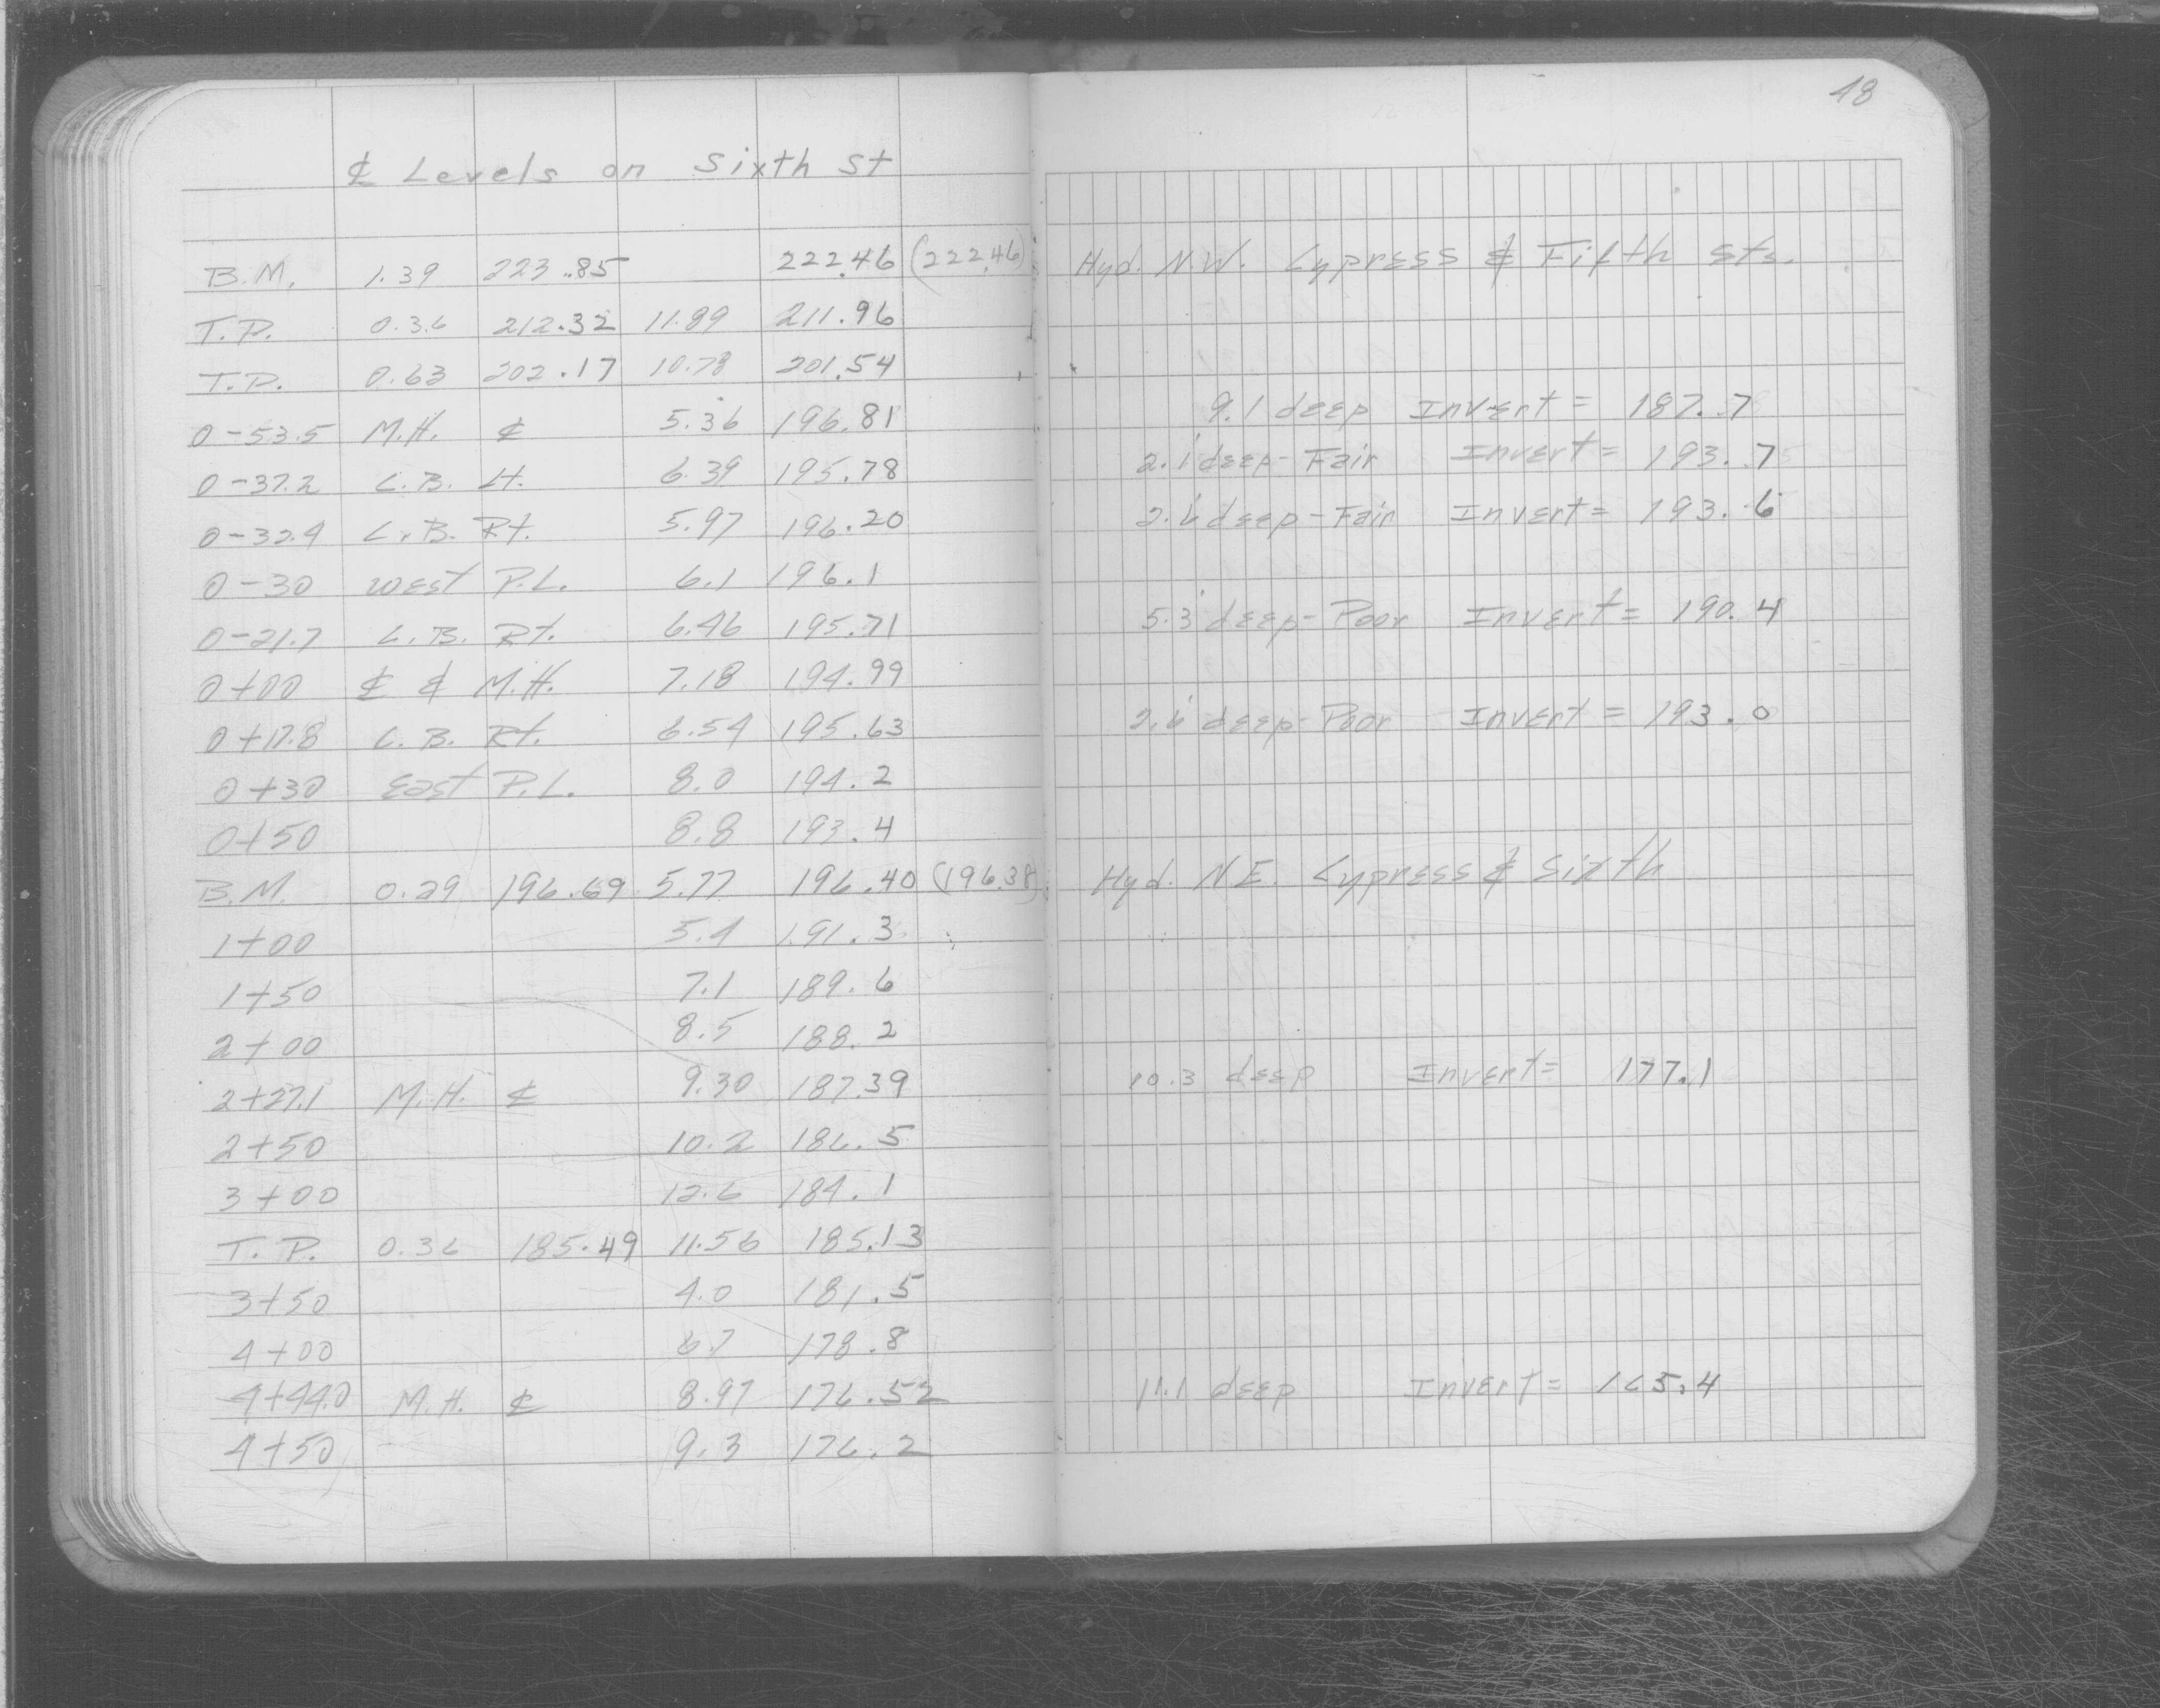 48
₵ Levels on Sixth St
B.M. 1.39 223.85 222.46 (222.46) Hyd. N.W. Cypress & Fifth Sts.
T.P. 0.36 212.32 11.89 211.96
T.P. 0.63 202.17 10.78 201.54
0-53.5 M.H. ₵ 5.36 196.81 9.1 deep Invert = 187.7
0-37.2 C.B. Lt. 6.39 195.78 2.1 deep-Fair Invert = 193.7
0-32.4 C.B. Rt. 5.97 196.20 2.6 deep-Fair Invert = 193.6
0-30 West P.L. 6.1 196.1
0-21.7 C.B. Rt. 6.46 195.71 5.3 deep-Poor Invert = 190.4
0+00 ₵ & M.H. 7.18 194.99
0+17.8 C.B. Rt. 6.54 195.63 2.6 deep-Poor Invert = 193.0
0+30 East P.L. 8.0 194.2
0+50 8.8 193.4
B.M. 0.29 196.69 5.77 196.40 (196.38) Hyd. N.E. Cypress & Sixth
1+00 5.4 191.3
1+50 7.1 189.6
2+00 8.5 188.2
2+27.1 M.H. ₵ 9.30 187.39 10.3 deep Invert = 177.1
2+50 10.2 186.5
3+00 12.6 184.1
T.P. 0.36 185.49 11.56 185.13
3+50 4.0 181.5
4+00 6.7 178.8
4+44.0 M.H. ₵ 8.97 176.52 11.1 deep Invert = 165.4
4+50 9.3 176.2